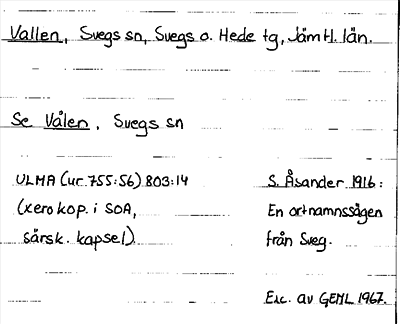 Vallen, Svegs sn, Svegs o. Hede tg, Jämtl. län.
Se Vålen, Svegs sn
ULMA (ur 755:56) 803:14
(xerokop. i SOA,
särsk. kapsel)
S. Åsander 1916:
En ortnamnssägen
från Sveg.
Exc. av GEML 1967.